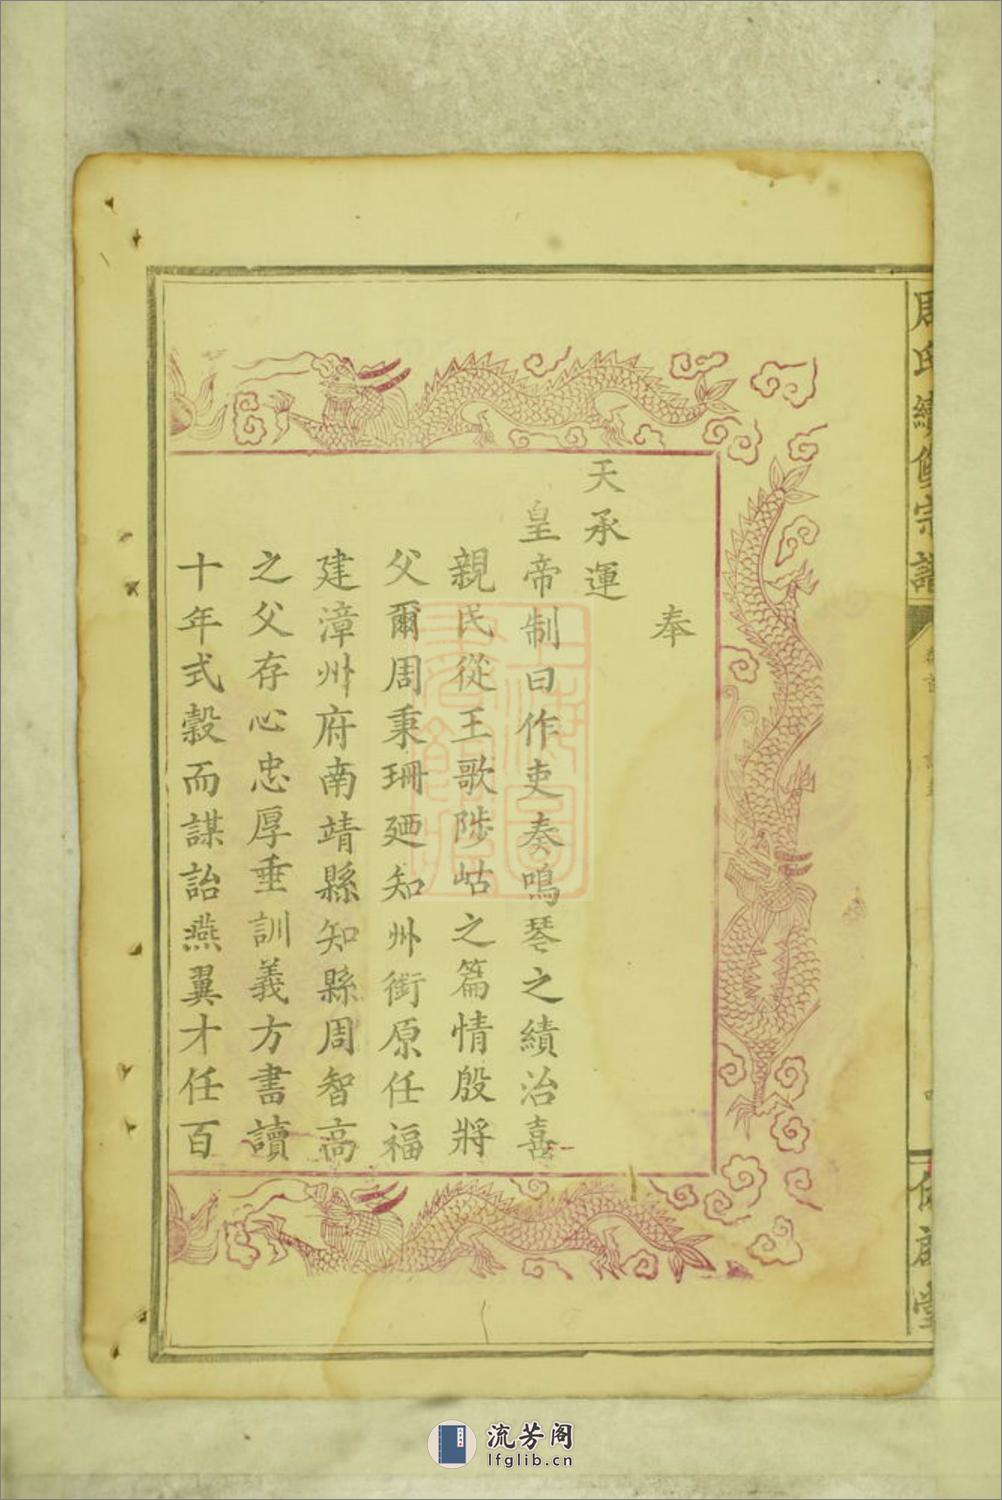 周氏續修宗譜
奉
天承運
皇帝制曰作吏奏鳴琴之績治喜
親民從王歌陟岵之篇情殷將
父爾周秉珊廼知州銜原任福
建漳州府南靖縣知縣周智高
之父存心忠厚垂訓義方書讀
十年式穀而謀詒燕翼才任百
上海圖書館藏
流芳阁
lfglib.cn